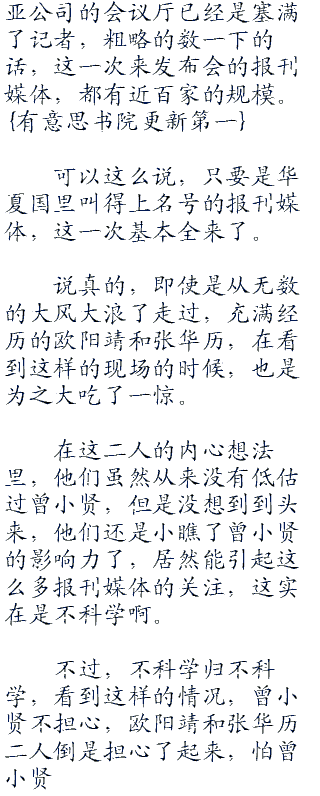 亚公司的会议厅已经是塞满
了记者，粗略的数一下的
话，这一次来发布会的报刊
媒体，都有近百家的规模。
{有意思书院更新第一}
可以这么说，只要是华
夏国里叫得上名号的报刊媒
体，这一次基本全来了。
说真的，即使是从无数
的大风大浪了走过，充满经
历的欧阳靖和张华历，在看
到这样的现场的时候，也是
为之大吃了一惊。
在这二人的内心想法
里，他们虽然从来没有低估
过曾小贤，但是没想到到头
来，他们还是小瞧了曾小贤
的影响力了，居然能引起这
么多报刊媒体的关注，这实
在是不科学啊。
不过，不科学归不科
学，看到这样的情况，曾小
贤不担心，欧阳靖和张华历
二人倒是担心了起来，怕曾
小贤